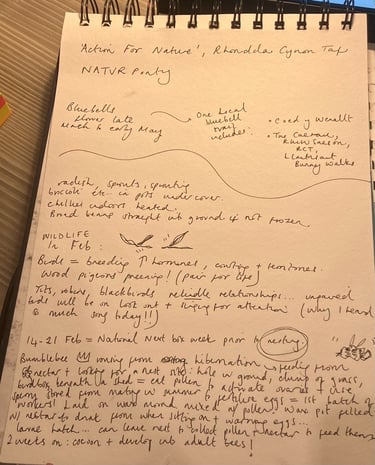 'Action For Nature', Rhondda Cynon Taf
NATUR Ponty
Bluebells
flower late
March to early May
One local
bluebell
trail
includes:
• Coed y Wenallt
• The Caerau,
RCT,
Llantrisant
Bunny Walks
radish, sprouts, sprouting
brocoli etc. in pots undercover.
chillies indoors heated.
Broad beans straight in ground if not frozen.
WILDLIFE
In Feb:
Birds = breeding ↑ hormones, courting + territories.
Wood pigeons preening! (pair for life)
Tits, robins, blackbirds reliable relationships... unpaired
birds will be on look out + singing for attention (why I heard
so much song today!!)
14-21 Feb = National Nest box week prior to nesting.
Bumblebee rousing from hibernation → feeding from
nectar + looking for a nest site: hole in ground, clump of grass,
birdbox, beneath a shed = eat pollen to activate ovaries + use
sperm stored from mating in summer to fertilise eggs = 1st batch of
workers! Laid on wax mound mixed w/ pollen, wax pot filled
w/ nectar to drink from when sitting on + warming eggs...
larvae hatch... can leave nest to collect pollen + nectar to feed them
2 weeks on: cocoon + develop into adult bees!